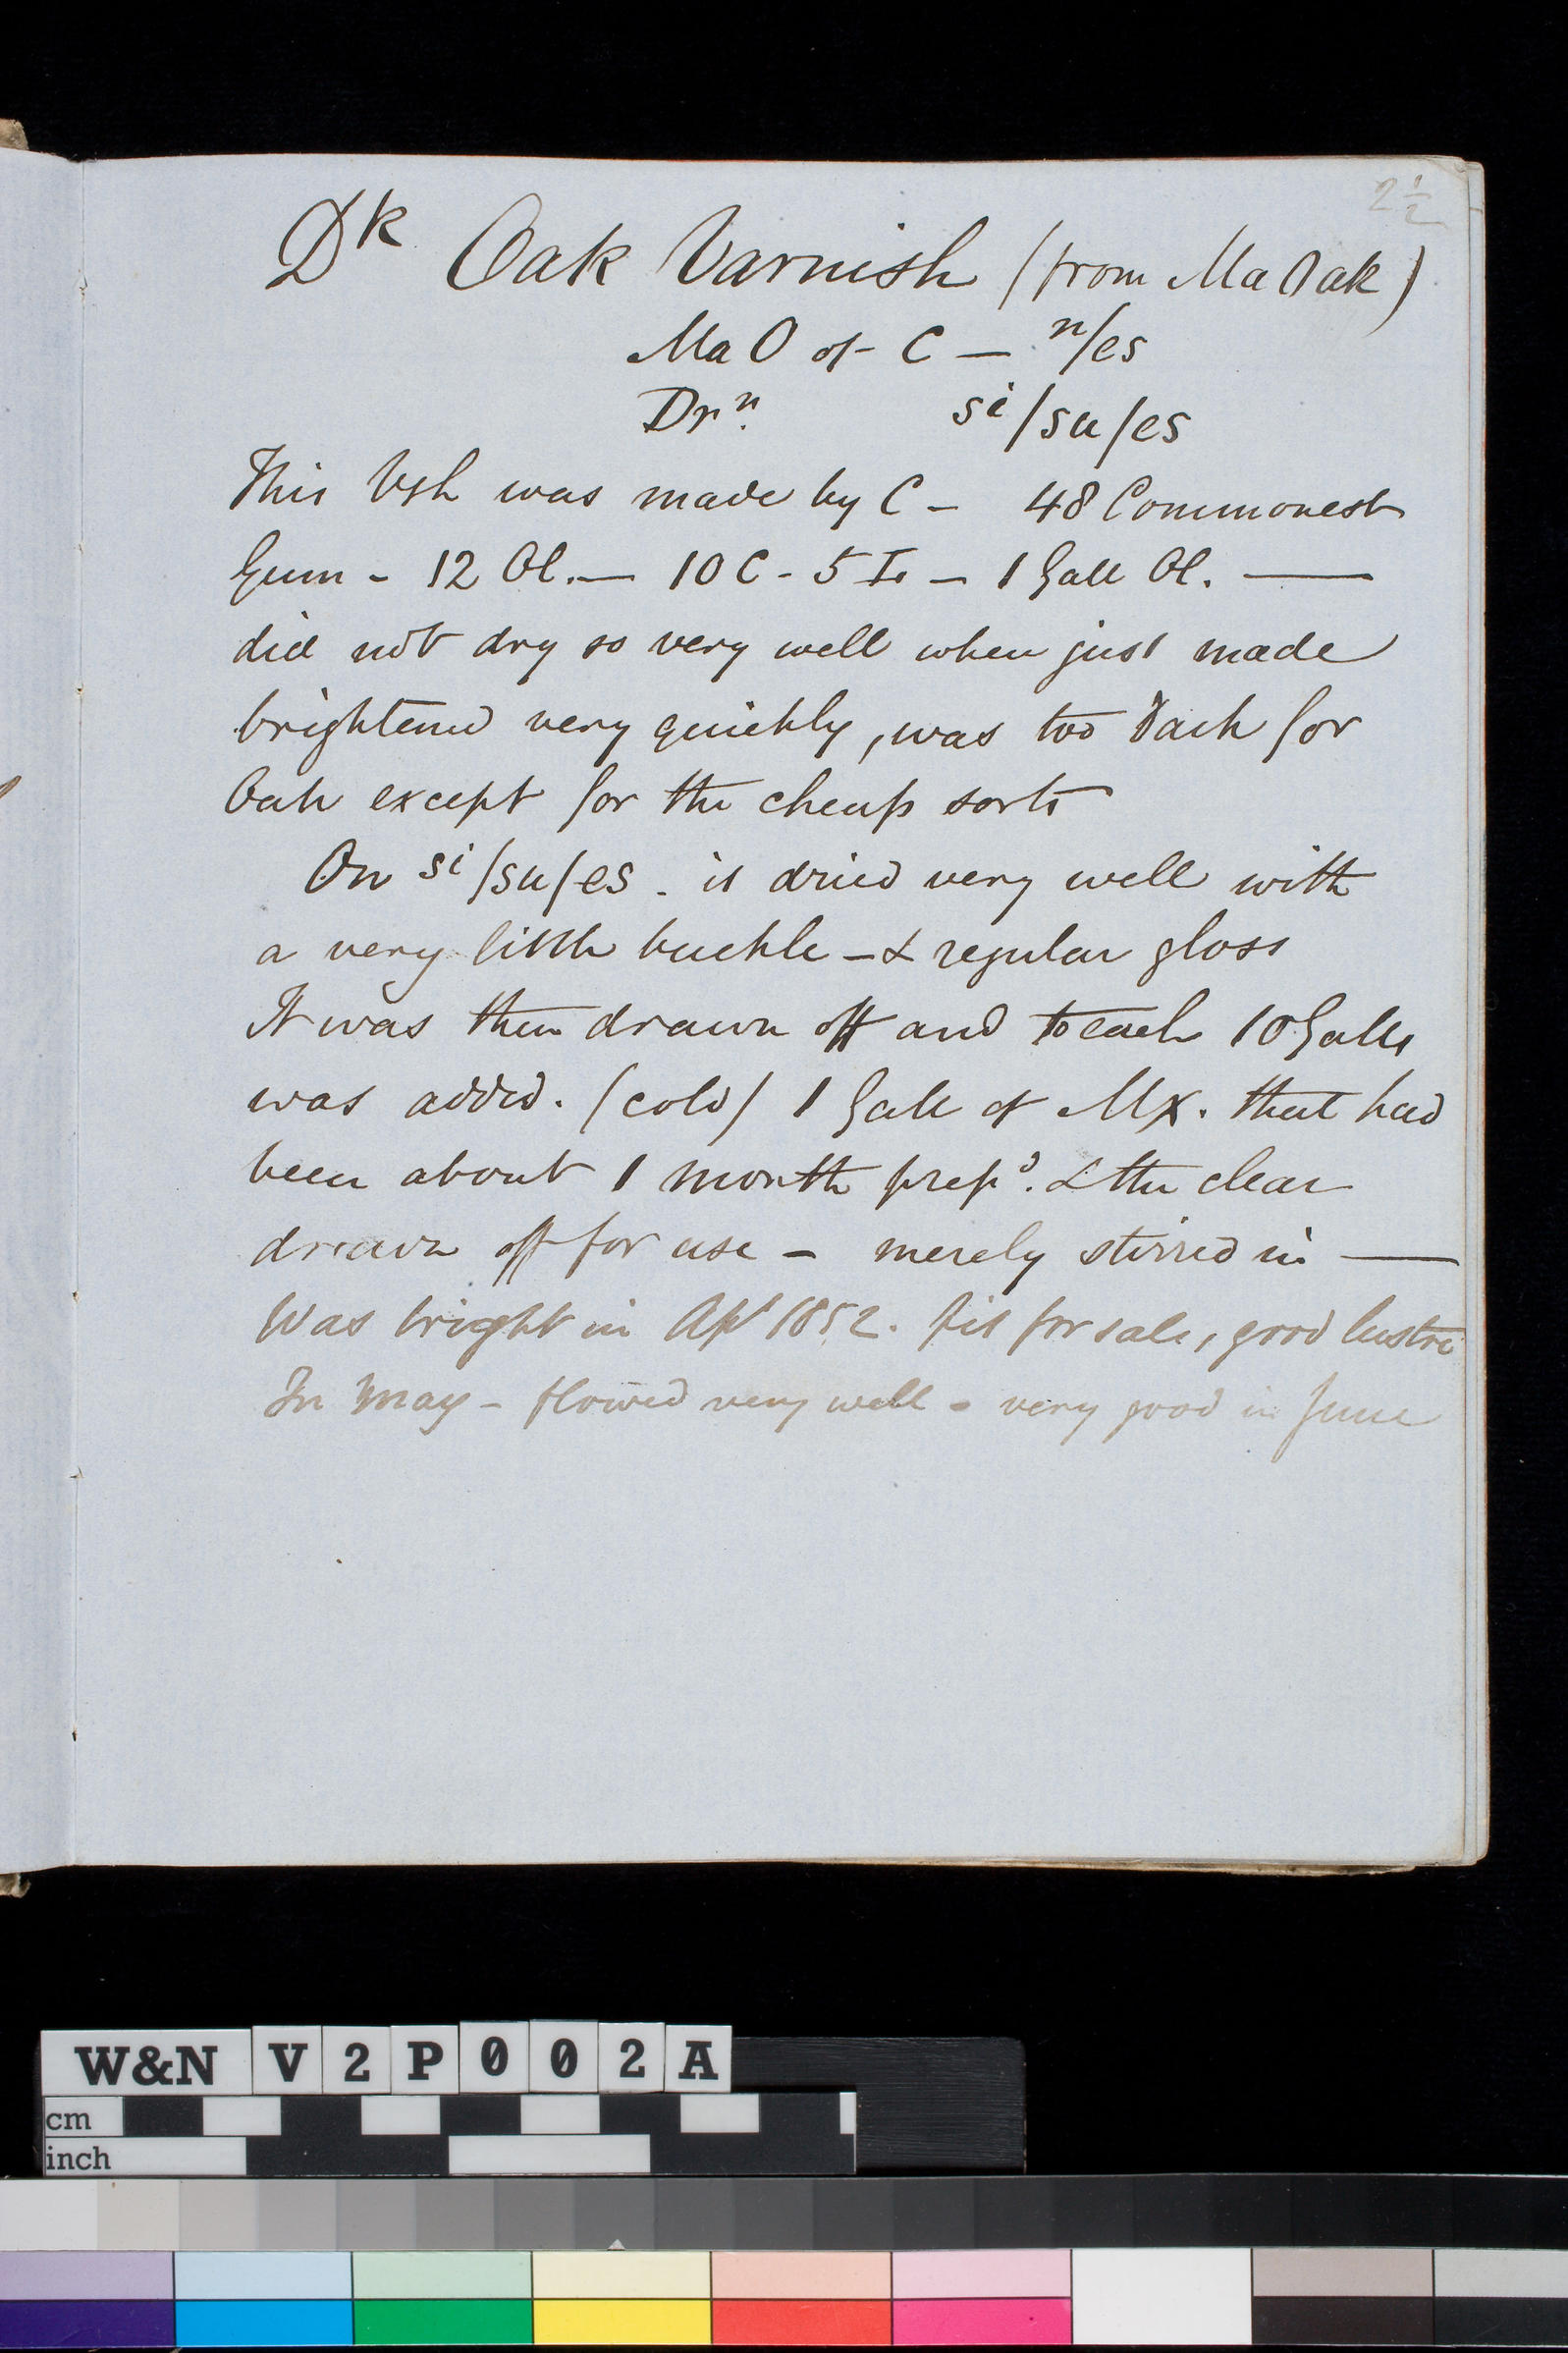 2 1/2
Dk Oak Varnish (from Ma Oak)
Ma O of C — n/es
Drn. si/su/es
This Vsh was made by C – 48 Commonest
Gum – 12 Ol. — 10 C – 5 — 1 Gall Ol. —
did not dry so very well when just made
brightened very quickly, was too dark for
Oak except for the cheap sorts
On si/su/es. it dried very well with
a very little buckle – & regular gloss
It was then drawn off and to each 10 Galls
was added. (cold) 1 Gall of Mx. that had
been about 1 month prepd. & the clear
drawn off for use – merely stirred in —
Was bright in Apl 1852. fit for sale, good lustre
In May – flowed very well – very good in June
W&N V2P002A
cm
inch